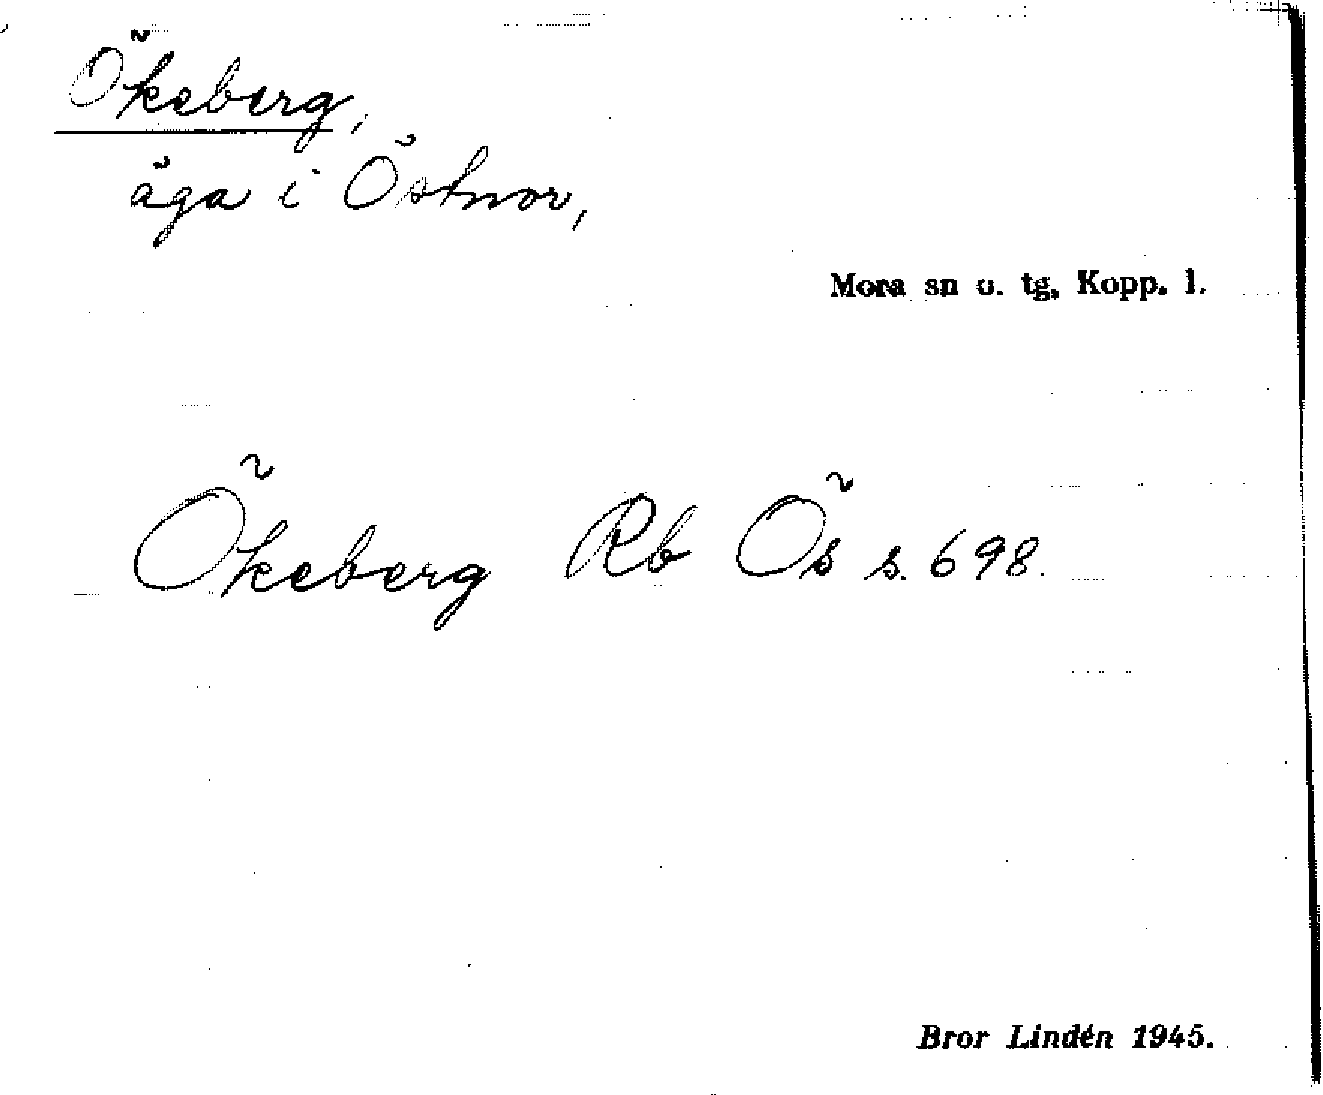 Ökeberg,
äga i Östnor,
Mora sn o. tg, Kopp. l.
Ökeberg Rb Ös s. 698.
Bror Lindén 1945.